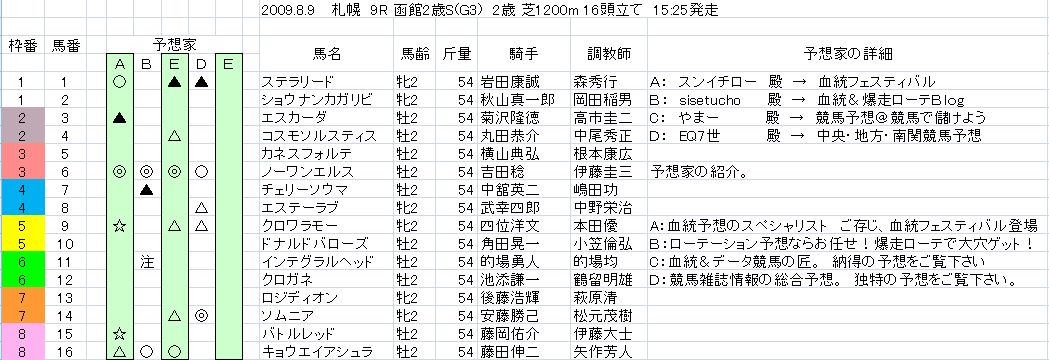 2009.8.9 札幌 9R 函館2歳S(G3) 2歳 芝1200m 16頭立て 15:25発走
枠番 馬番 予想家 馬名 馬齢 斤量 騎手 調教師 予想家の詳細
A B E D E
1 1 ○ ▲ ▲ ステラリード 牝2 54 岩田康誠 森秀行 A: スンイチロー 殿 → 血統フェスティバル
1 2 ショウナンカガリビ 牝2 54 秋山真一郎 岡田稲男 B: sisetucho 殿 → 血統&爆走ローテBlog
2 3 ▲ エスカーダ 牡2 54 菊沢隆徳 高市圭二 C: やまー 殿 → 競馬予想@競馬で儲けよう
2 4 △ コスモソルスティス 牡2 54 丸田恭介 中尾秀正 D: EQ7世 殿 → 中央・地方・南関競馬予想
3 5 カネスフォルテ 牡2 54 横山典弘 根本康広
3 6 ◎ ◎ ◎ ○ ノーワンエルス 牡2 54 吉田稔 伊藤圭三 予想家の紹介。
4 7 ▲ チェリーソウマ 牡2 54 中舘英二 嶋田功
4 8 △ エステーラブ 牝2 54 武幸四郎 中野栄治
5 9 ☆ △ △ クロワラモー 牡2 54 四位洋文 本田優 A:血統予想のスペシャリスト ご存じ、血統フェスティバル登場
5 10 ドナルドバローズ 牡2 54 角田晃一 小笠倫弘 B:ローテーション予想ならお任せ!爆走ローテで大穴ゲット!
6 11 注 インテグラルヘッド 牡2 54 的場勇人 的場均 C:血統&データ競馬の匠。 納得の予想をご覧下さい
6 12 クロガネ 牡2 54 池添謙一 鶴留明雄 D:競馬雑誌情報の総合予想。 独特の予想をご覧下さい。
7 13 ロジディオン 牝2 54 後藤浩輝 萩原清
7 14 △ ◎ ソムニア 牝2 54 安藤勝己 松元茂樹
8 15 ☆ バトルレッド 牡2 54 藤岡佑介 伊藤大士
8 16 △ ○ ○ キョウエイアシュラ 牡2 54 藤田伸二 矢作芳人